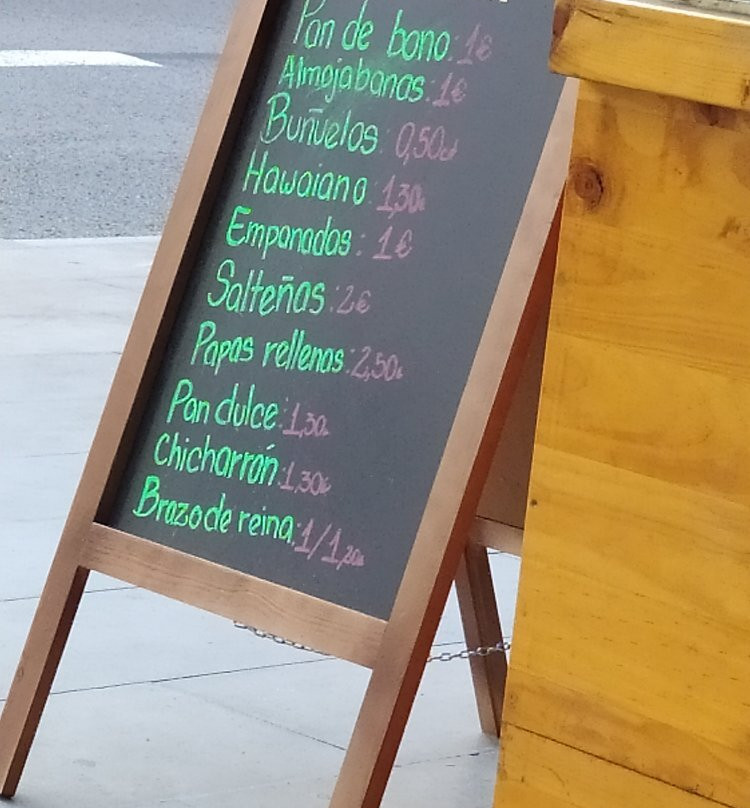 Pan de bono: 1€
Almojabanas: 1€
Buñuelos: 0,50
Hawaiano 1,30
Empanadas: 1€
Salteñas: 2€
Papas rellenas: 2,50
Pan dulce: 1,30
Chicharrón: 1,30
Brazo de reina: 1/1,20